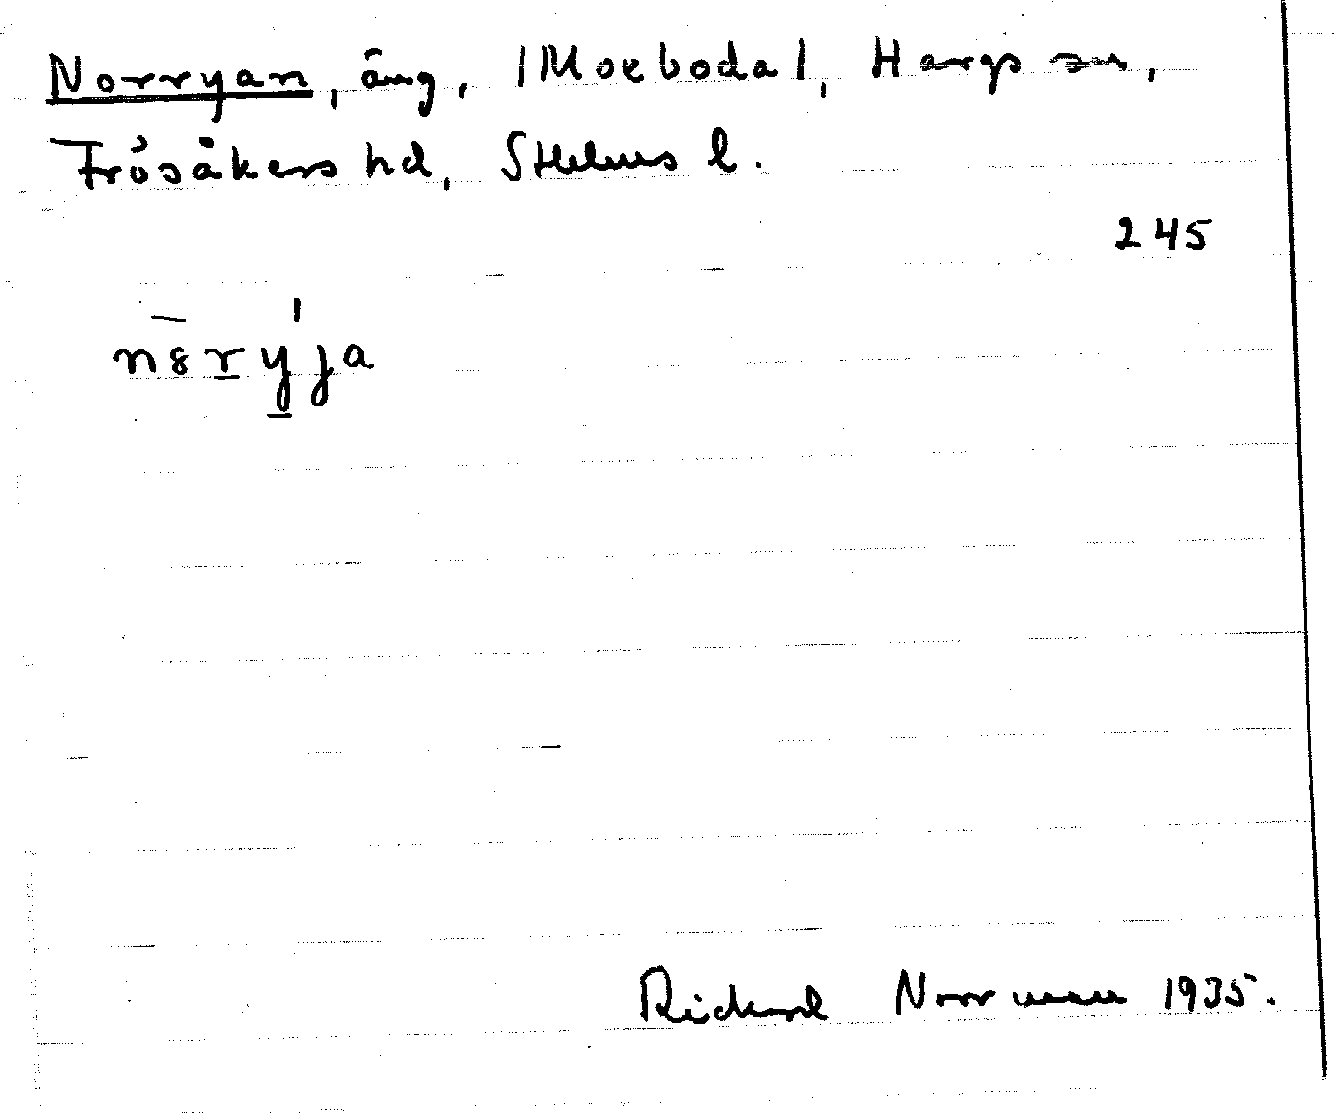 Norryan, äng, /Moxboda/, Hargs sn,
Frösåkers hd, Sthlms l.
245
nōryja
Rickard Norrman 1935.